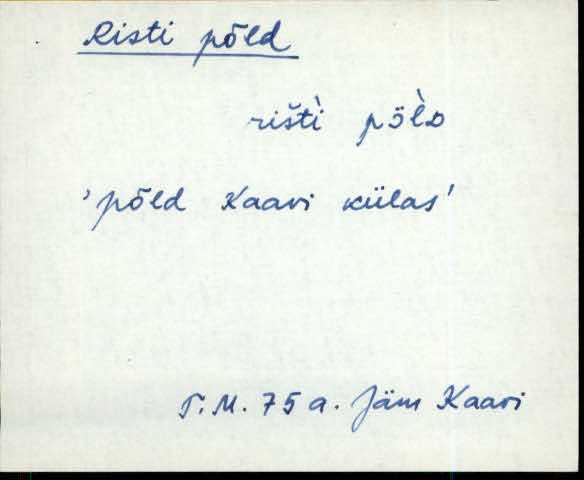 Risti põld
rištì pöl̀D
'põld Kaavi külas'
T.M. 75 a. Jäm Kaavi